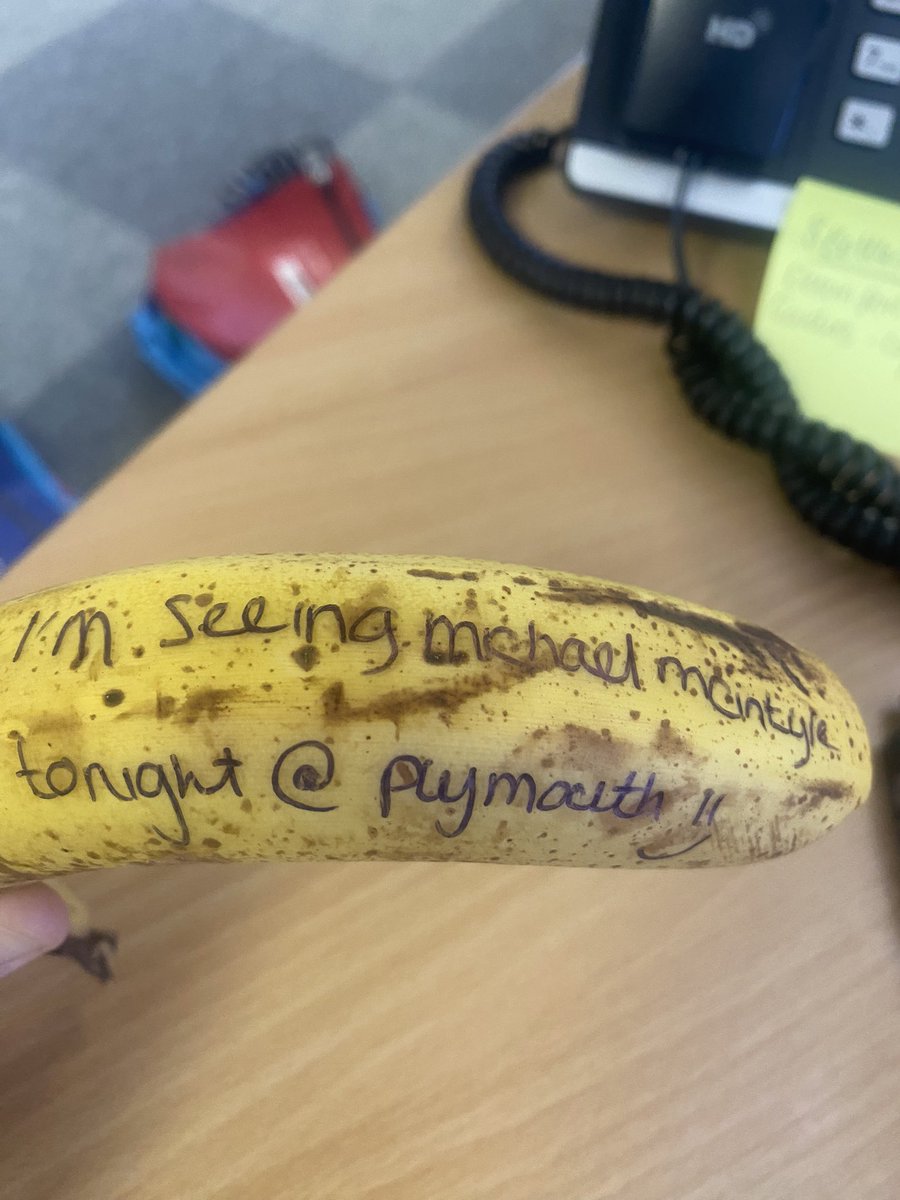 HD
I'm seeing michael mcintyre
tonight @ plymouth !!